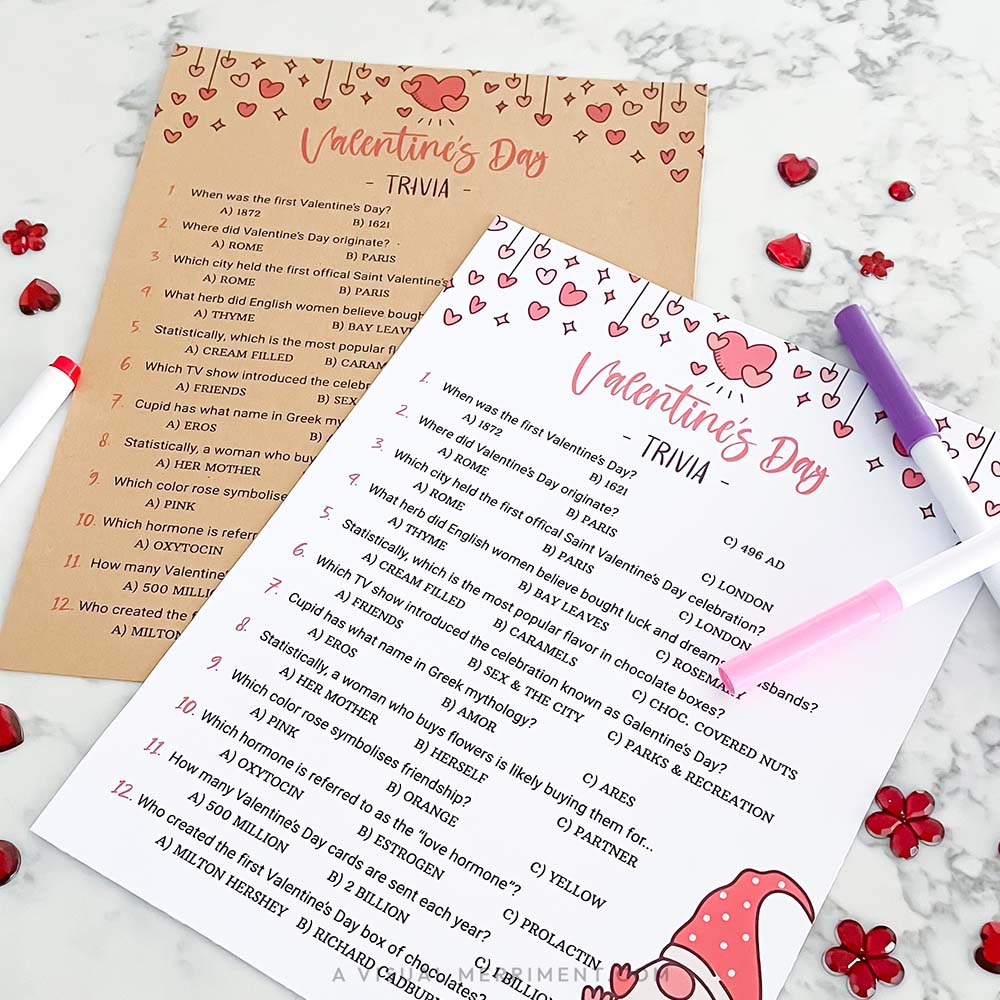 Valentine's Day
- TRIVIA -
1. When was the first Valentine's Day?
A) 1872 B) 1621
2. Where did Valentine's Day originate?
A) ROME B) PARIS
3. Which city held the first offical Saint Valentine's
A) ROME B) PARIS
4. What herb did English women believe bough
A) THYME B) BAY LEAV
5. Statistically, which is the most popular f
A) CREAM FILLED B) CARAM
6. Which TV show introduced the celebr
A) FRIENDS B) SEX
7. Cupid has what name in Greek my
A) EROS B)
8. Statistically, a woman who buy
A) HER MOTHER
9. Which color rose symbolise
A) PINK
10. Which hormone is referr
A) OXYTOCIN
11. How many Valentine
A) 500 MILLI
12. Who created the f
A) MILTON
Valentine's Day
- TRIVIA -
1. When was the first Valentine's Day?
A) 1872 B) 1621 C) 496 AD
2. Where did Valentine's Day originate?
A) ROME B) PARIS C) LONDON
3. Which city held the first offical Saint Valentine's Day celebration?
A) ROME B) PARIS C) LONDON
4. What herb did English women believe bought luck and dreams sbands?
A) THYME B) BAY LEAVES C) ROSEMARY
5. Statistically, which is the most popular flavor in chocolate boxes?
A) CREAM FILLED B) CARAMELS C) CHOC. COVERED NUTS
6. Which TV show introduced the celebration known as Galentine's Day?
A) FRIENDS B) SEX & THE CITY C) PARKS & RECREATION
7. Cupid has what name in Greek mythology?
A) EROS B) AMOR C) ARES
8. Statistically, a woman who buys flowers is likely buying them for...
A) HER MOTHER B) HERSELF C) PARTNER
9. Which color rose symbolises friendship?
A) PINK B) ORANGE C) YELLOW
10. Which hormone is referred to as the "love hormone"?
A) OXYTOCIN B) ESTROGEN C) PROLACTIN
11. How many Valentine's Day cards are sent each year?
A) 500 MILLION B) 2 BILLION C) BILLION
12. Who created the first Valentine's Day box of chocolates?
A) MILTON HERSHEY B) RICHARD CADBURY
A VISUAL MERRIMENT.COM